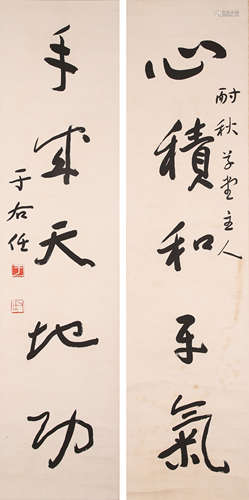 心積和平氣
耐秋草堂主人
手成天地功
于右任